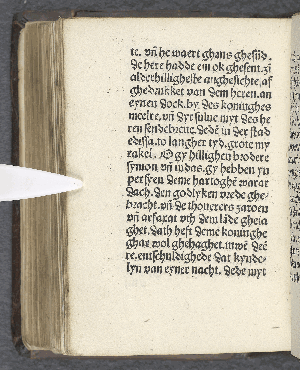 te. vñ he waert ghans ghesũd.
de here hadde em ok ghesent. zĩ
alderhilligheste anghesichte, af
ghedrucket van dem heren. an
eynen doek. by des koninghes
meelre. vñ dyt sulue myt des he
ren sendebreue. dedẽ in der stad
edissa. to langher tyd. grote my
rakel. O gy hillighen brodere
symon vñ iudas. gy hebben yn
persyen deme hartoghẽ warar
dach. den godlyken vrede ghe
bracht. vñ de thouerers zaroen
vñ arfaxat vth dem lãde gheia
ghet. dath heft deme koninghe
ghar wol ghehaghet. vnde deẽ
re. entschuldighede dat kynde
lyn van eyner nacht. dede myt